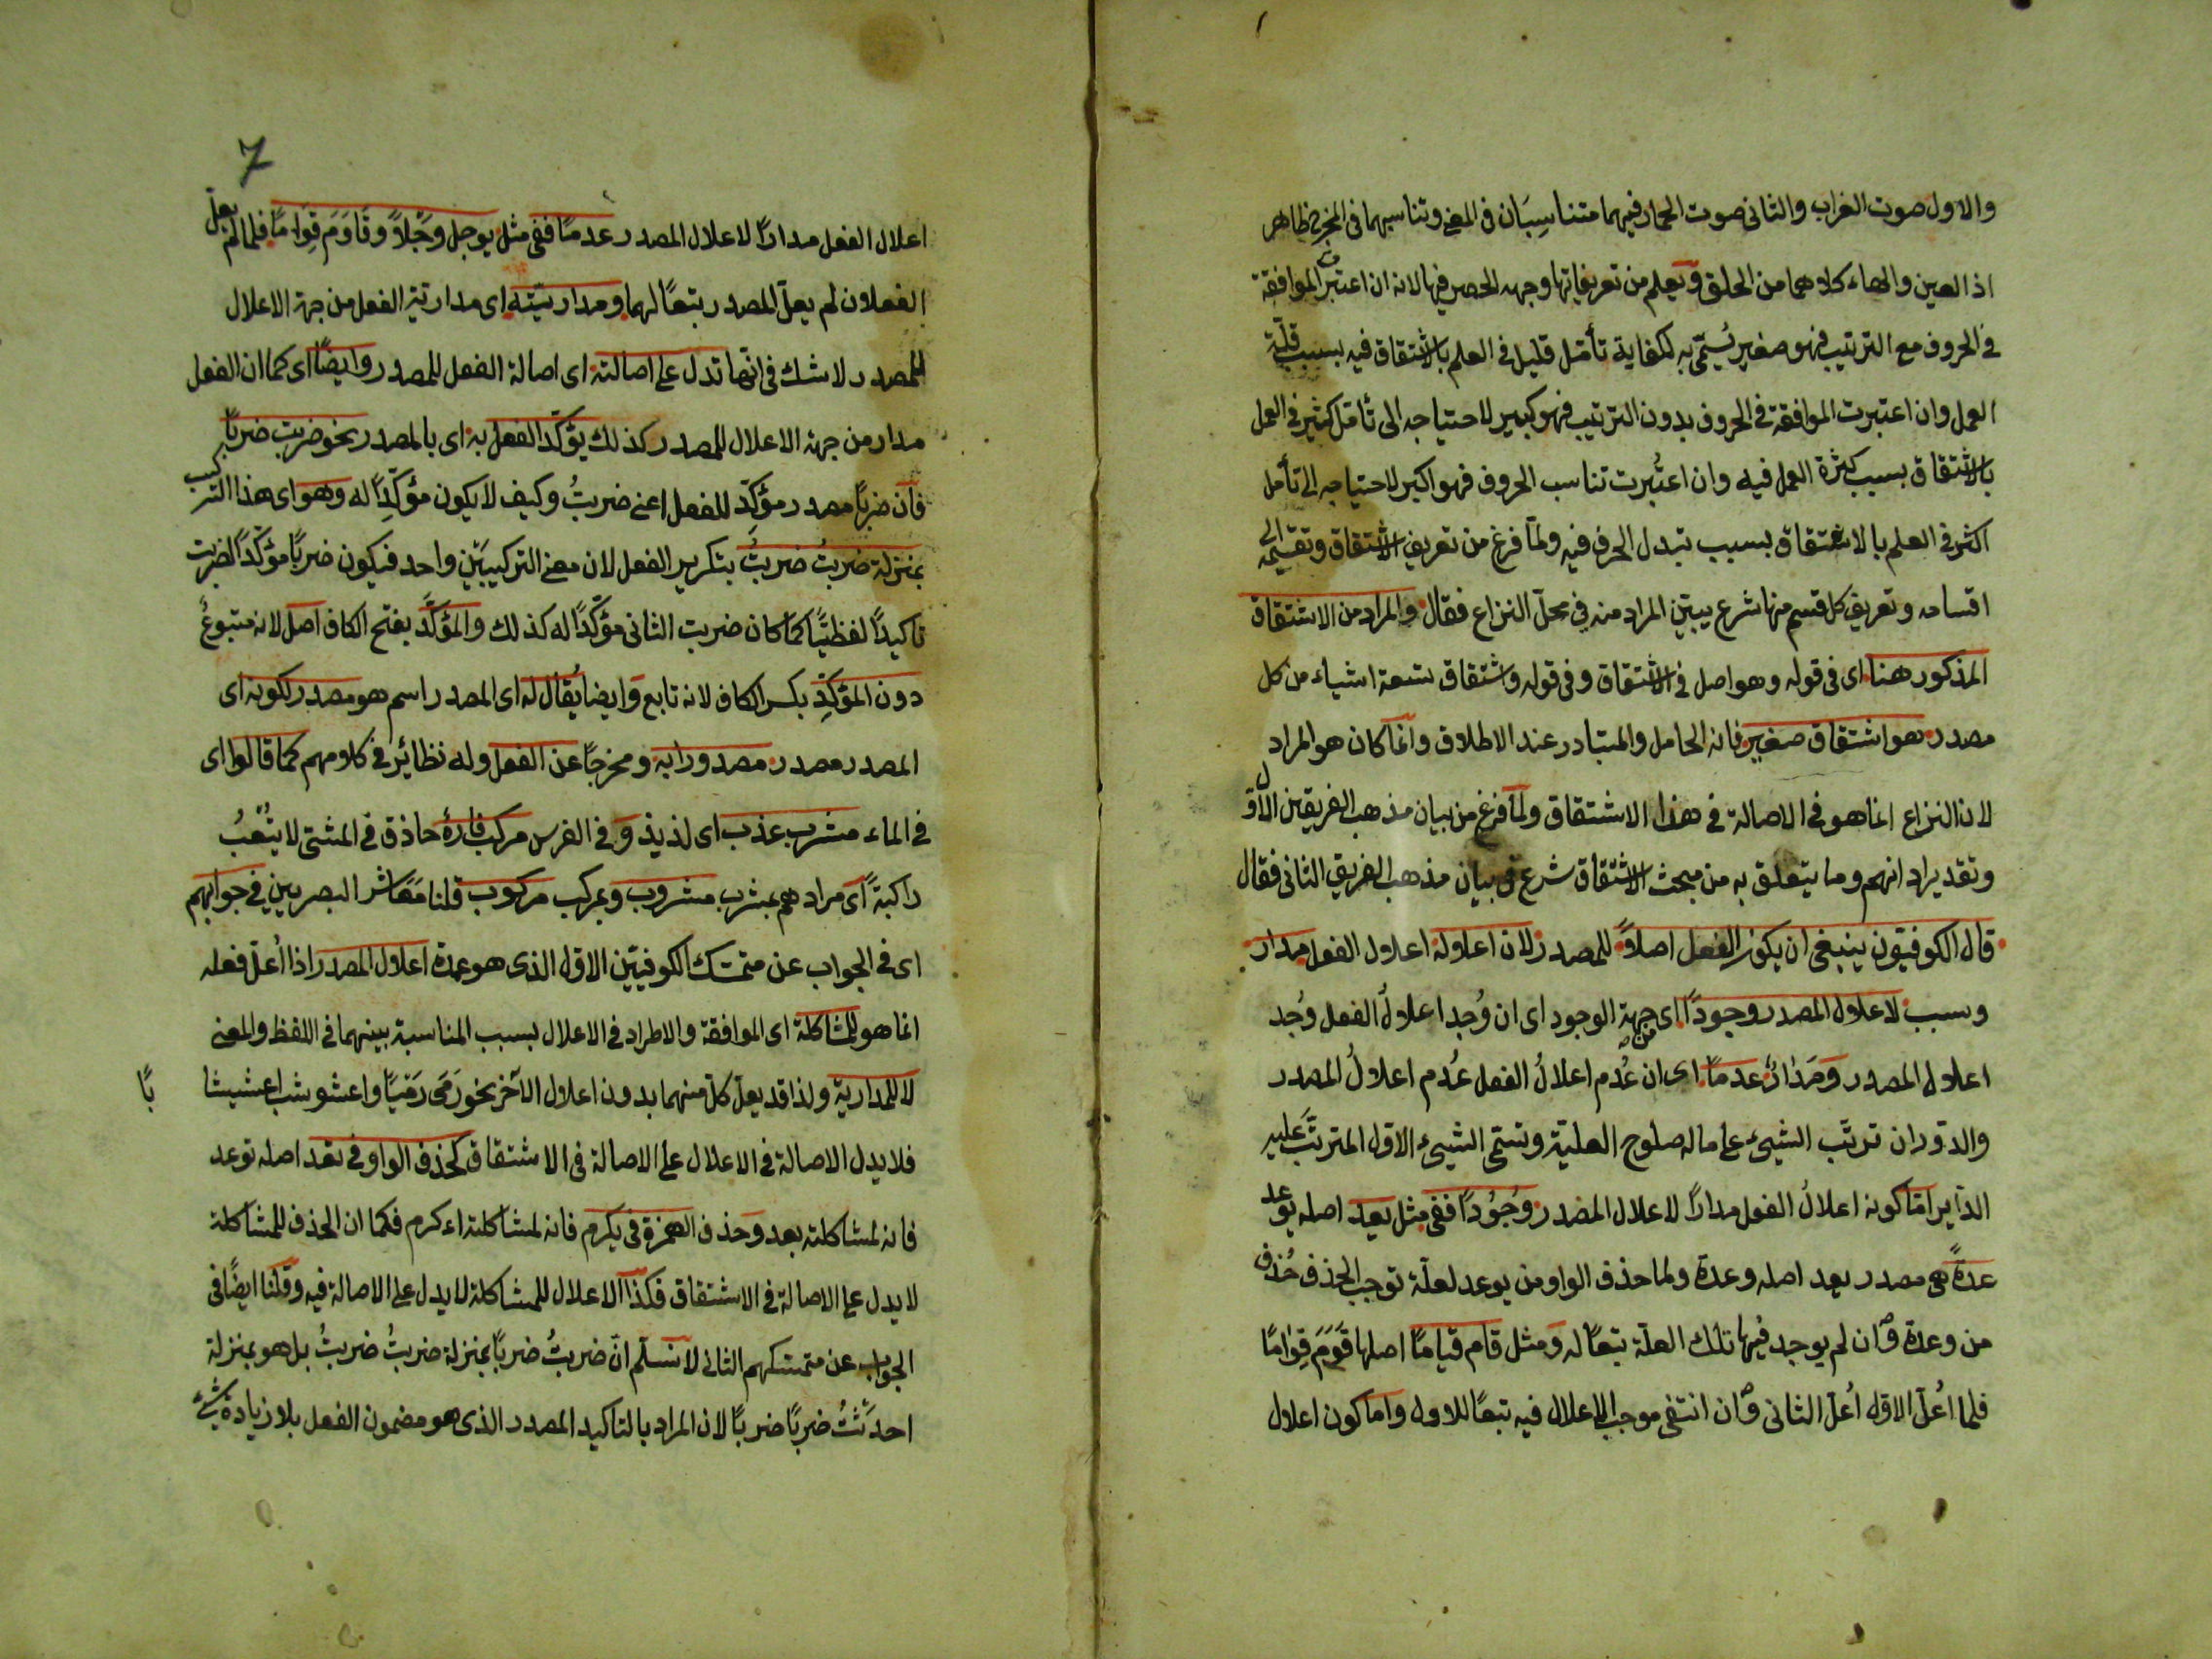 والاول صوت الغراب والثانى صوت الحمار فيهما متناسِبَان فى المعنى وتناسبهما فى المخرج ظاهر
اذ العين والهاء كلاهما من الحلق ويعلم من تعريفاتها وجه الحصر فيها لانه ان اعتبرت الموافقة
فى الحروف مع الترتيب فهو صغير يُسمّى به لكفاية تأمّل قليل فى العلم بالاشتقاق فيه بسبب قلّة
العمل وان اعتبرت الموافقة فى الحروف بدون الترتيب فهو كبير لاحتياجه الى تأمّل كثير فى العمل
بالاشتقاق بسبب كثرة العمل فيه وان اعتُبرت تناسب الحروف فهو اكبر لاحتياجه الى تأمل
اكثر فى العلم بالاشتقاق بسبب تبدل الحرف فيه ولمّا فرغ من تعريف الاشتقاق وتقسيمه الى
اقسامه وتعريف كل قسم منها شرع يبيّن المراد منه فى محلّ النزاع فقال والمراد من الاشتقاق
المذكور هنا اى فى قوله وهو اصل فى الاشتقاق وفى قوله واشتقاق تسعة اشياء من كل
مصدر هو اشتقاق صغير فانه الحامل والمتبادر عند الاطلاق وانّما كان هو المراد
لان النزاع انما هو فى الاصالة فى هذا الاشتقاق ولمّا فرغ من بيان مذهب الفريقين الاوّل
وتقدير ادلتهم وما يتعلق به من مبحث الاشتقاق شرع فى بيان مذهب الفريق الثانى فقال
قال الكوفيّون ينبغى ان يكون الفعل اصلاً للمصدر لان اعلاله اعلال الفعل مدار
وسبب لاعلال المصدر وجوداً اى من جهة الوجود اى ان وُجد اعلالُ الفعل وُجد
اعلال المصدر ومَدَارٌ عدماً اى ان عُدم اعلالُ الفعل عُدم اعلالُ المصدر
والدّوران ترتّب الشيئ على ماله صلوح العليّة وتسمّى الشيئ الاوّل المترتّب عليه
الدّاير امّا كونه اعلالُ الفعل مداراً لاعلال المصدر وُجُوداً ففى مثل يعد اصله يوعد
عدةً هى مصدر يعد اصله وعدة ولما حذف الواو من يوعد لعلّة توجب الحذف حُذف
من وعدة وان لم يوجد فيها تلك العلّة تبعاً له ومثل قام قياماً اصلها قَوَمَ قِوَاماً
فلما اُعلّ الاوّل اُعلّ الثانى وان انتفى موجب الاعلال فيه تبعاً للاول واما كون اعلال
7
اعلال الفعل مداراً لاعلال المصدر عدماً ففى مثل يوجل وَجَلاً وقَاوَمَ قِوَاماً فلما لم يعلّ
الفعلان لم يعلّ المصدر تبعاً لهما ومداريّته اى مداريّة الفعل من جهة الاعلال
للمصدر لا شك فى انّها تدل على اصالته اى اصالة الفعل للمصدر وايضاً اى كما ان الفعل
مدار من جهة الاعلال للمصدر كذلك يؤكّد الفعل به اى بالمصدر نحو ضربت ضرباً
فان ضرباً مصدر مؤكِّد للفعل اعنى ضربتُ وكيف لا يكون مؤكّداً له وهو اى هذا التركيب
بمنزلة ضربتُ ضربتُ بتكرير الفعل لان معنى التركيبَيْن واحد فيكون ضرباً مؤكّداً لضربت
تاكيداً لفظيًّا كما كان ضربت الثانى مؤكّداً له كذلك والمؤكَّد بفتح الكاف اصل لانه متبوعٌ
دون المؤكِّد بكسر الكاف لانه تابع وايضا يُقال له اى المصدر اسم هو مصدر لكونه اى
المصدر مصدر مصدورا به ومخرجاً عن الفعل وله نظائر فى كلامهم كما قالوا اى
فى الماء مشرب عذب اى لذيذ و فى الفرس مركب فارهٌ حاذق فى المشى لا يتُعْبُ
راكبهً اى مرادهم بمشرب مشروب وبمركب مركوب قلنا مَعَاشر البصريين فى جوابهم
اى فى الجواب عن متمسّك الكوفيّين الاول الذى هو عمدة اعلال المصدر اذا اُعلّ فعله
انما هو للمشاكلة اى الموافقة والاطراد فى الاعلال بسبب المناسبة بينهما فى اللفظ والمعنى
لا للمدارية ولذا قد يعلّ كلّ منهما بدون اعلال الآخر نحو رَمَى رَمْيًا واعشوشب اعشيشا
باً
فلا يدل الاصالة فى الاعلال على الاصالة فى الاشتقاق كحذف الواو فى تعد اصله توعد
فانه لمشاكلته يعد وحذف الهمزة فى يكرم فانه لمشاكلته اءكرم فكما ان الحذف للمشاكلة
لا يدل على الاصالة فى الاشتقاق فكذا الاعلال للمشاكلة لا يدل على الاصالة فيه وقلنا ايضًا فى
الجواب عن متمسّكهم الثانى لا نسلّم انّ ضربتُ ضرباً بمنزلة ضربتُ ضربتُ بل هو بمنزلة
احدَثتُ ضرباً ضرباً لان المراد بالتاكيد المصدر الذى هو مضمون الفعل بلا زيادة شئ